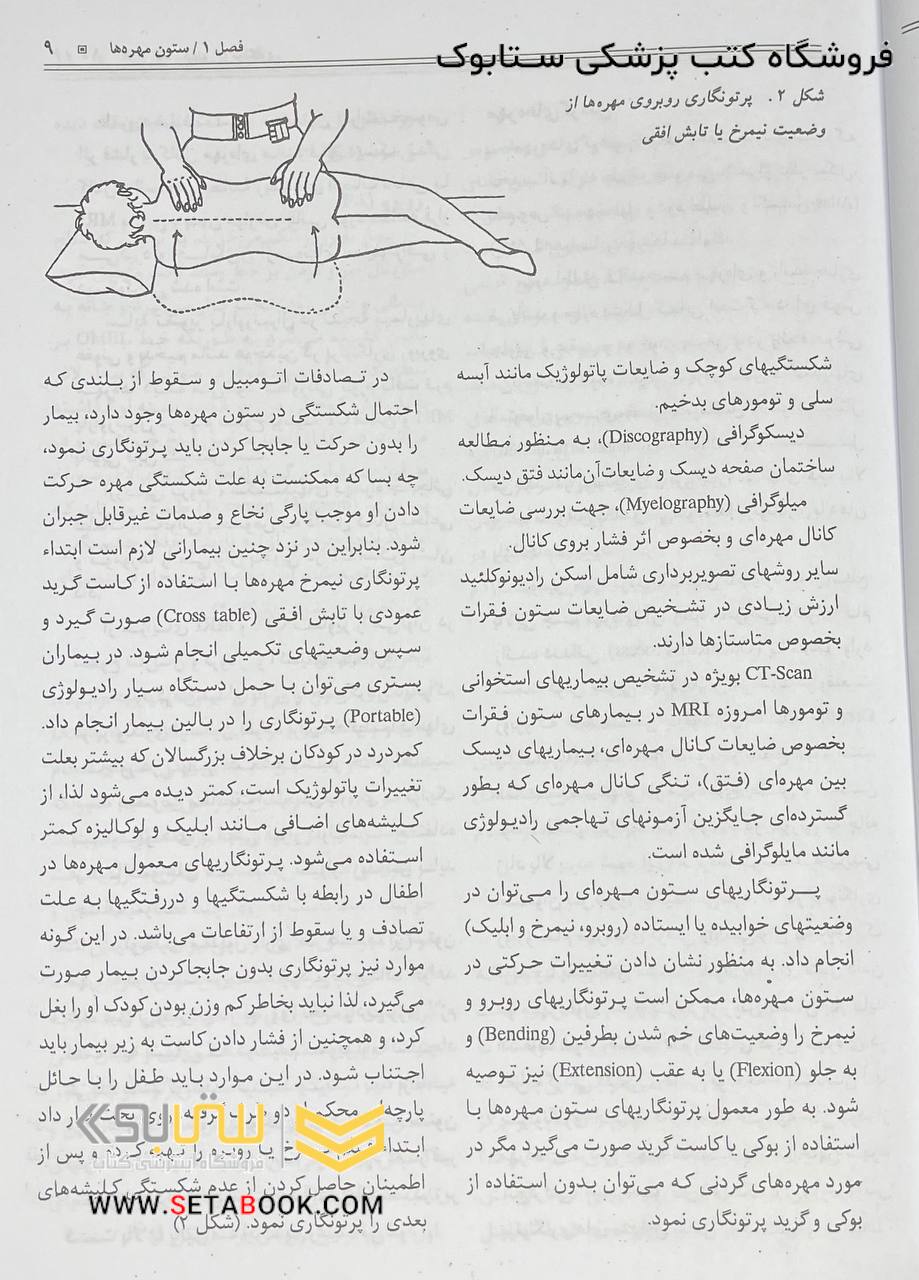 فروشگاه کتب پزشکی ستابوک
فصل ۱ / ستون مهره‌ها ۹
شکل ۲. پرتونگاری روبروی مهره‌ها از
وضعیت نیمرخ یا تابش افقی
شکستگیهای کوچک و ضایعات پاتولوژیک مانند آبسه
سلی و تومورهای بدخیم.
دیسکوگرافی (Discography)، به منظور مطالعه
ساختمان صفحه دیسک و ضایعات‌آن‌مانند فتق دیسک.
میلوگرافی (Myelography)، جهت بررسی ضایعات
کانال مهره‌ای و بخصوص اثر فشار بروی کانال.
سایر روشهای تصویربرداری شامل اسکن رادیونوکلئید
ارزش زیادی در تشخیص ضایعات ستون فقرات
بخصوص متاستازها دارند.
CT-Scan بویژه در تشخیص بیماریهای استخوانی
و تومورها امروزه MRI در بیمارهای ستون فقرات
بخصوص ضایعات کانال مهره‌ای، بیماریهای دیسک
بین مهره‌ای (فتق)، تنگی کانال مهره‌ای که بطور
گسترده‌ای جایگزین آزمونهای تهاجمی رادیولوژی
مانند مایلوگرافی شده است.
پرتونگاریهای ستون مهره‌ای را می‌توان در
وضعیتهای خوابیده یا ایستاده (روبرو، نیمرخ و ابلیک)
انجام داد. به منظور نشان دادن تغییرات حرکتی در
ستون مهره‌ها، ممکن است پرتونگاریهای روبرو و
نیمرخ را وضعیت‌های خم شدن بطرفین (Bending) و
به جلو (Flexion) یا به عقب (Extension) نیز توصیه
شود. به طور معمول پرتونگاریهای ستون مهره‌ها با
استفاده از بوکی یا کاست گرید صورت می‌گیرد مگر در
مورد مهره‌های گردنی که می‌توان بدون استفاده از
بوکی و گرید پرتونگاری نمود.
در تصادفات اتومبیل و سقوط از بلندی که
احتمال شکستگی در ستون مهره‌ها وجود دارد، بیمار
را بدون حرکت یا جابجا کردن باید پرتونگاری نمود،
چه بسا که ممکنست به علت شکستگی مهره حرکت
دادن او موجب پارگی نخاع و صدمات غیرقابل جبران
شود. بنابراین در نزد چنین بیمارانی لازم است ابتداء
پرتونگاری نیمرخ مهره‌ها با استفاده از کاست گرید
عمودی با تابش افقی (Cross table) صورت گیرد و
سپس وضعیتهای تکمیلی انجام شود. در بیماران
بستری می‌توان با حمل دستگاه سیار رادیولوژی
(Portable) پرتونگاری را در بالین بیمار انجام داد.
کمردرد در کودکان برخلاف بزرگسالان که بیشتر بعلت
تغییرات پاتولوژیک است، کمتر دیده می‌شود لذا، از
کلیشه‌های اضافی مانند ابلیک و لوکالیزه کمتر
استفاده می‌شود. پرتونگاریهای معمول مهره‌ها در
اطفال در رابطه با شکستگیها و دررفتگیها به علت
تصادف و یا سقوط از ارتفاعات می‌باشد. در این گونه
موارد نیز پرتونگاری بدون جابجاکردن بیمار صورت
می‌گیرد، لذا نباید بخاطر کم وزن بودن کودک او را بغل
کرد، و همچنین از فشار دادن کاست به زیر بیمار باید
اجتناب شود. در این موارد باید طفل را با حائل
پارچه‌ای محکم از دو طرف گرفته روی تخت قرار داد
ابتداء نیمرخ یا روبرو را تهیه کرده و پس از
اطمینان حاصل کردن از عدم شکستگی کلیشه‌های
بعدی را پرتونگاری نمود. (شکل ۲)
ستابوک
فروشگاه اینترنتی کتاب
WWW.SETABOOK.COM